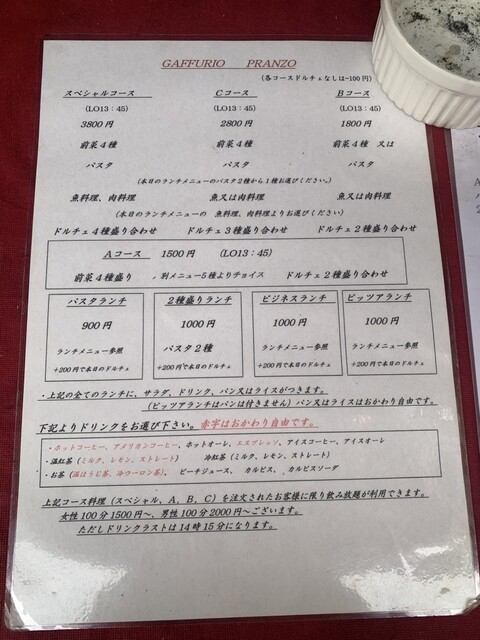 GAFFURIO PRANZO
(各コースドルチェなしは-100円)
スペシャルコース Cコース Bコース
(LO13:45) (LO13:45) (LO13:45)
3800円 2800円 1800円
前菜4種 前菜4種 前菜4種 又は
パスタ パスタ パスタ
(本日のランチメニューのパスタ2種から1種お選びください。)
魚料理、肉料理 魚又は肉料理 魚又は肉料理
(本日のランチメニューの 魚料理、肉料理よりお選びください)
ドルチェ4種盛り合わせ ドルチェ3種盛り合わせ ドルチェ2種盛り合わせ
Aコース 1500円 (LO13:45)
前菜4種盛り 、別メニュー5種よりチョイス ドルチェ2種盛り合わせ
パスタランチ 2種盛りランチ ビジネスランチ ピッツアランチ
900円 1000円 1000円 1000円
ランチメニュー参照 パスタ2種 ランチメニュー参照 ランチメニュー参照
+200円で本日のドルチェ +200円で本日のドルチェ +200円で本日のドルチェ +200円で本日のドルチェ
・上記の全てのランチに、サラダ、ドリンク、パン又はライスがつきます。
(ピッツアランチはパンは付きません)パン又はライスはおかわり自由です。
下記よりドリンクをお選び下さい。赤字はおかわり自由です。
・ホットコーヒー、アメリカンコーヒー、ホットオーレ、エスプレッソ、アイスコーヒー、アイスオーレ
・温紅茶(ミルク、レモン、ストレート) 冷紅茶(ミルク、レモン、ストレート)
・お茶(温ほうじ茶、冷ウーロン茶)、 ピーチジュース、 カルピス、 カルピスソーダ
上記コース料理(スペシャル、A、B、C)を注文されたお客様に限り飲み放題が利用できます。
女性100分1500円〜、男性100分2000円〜ございます。
ただしドリンクラストは14時15分になります。